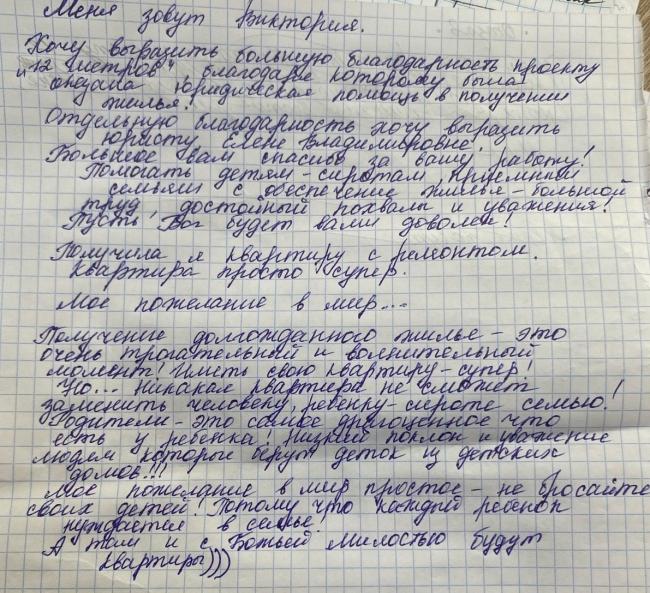 Меня зовут Виктория.
Хочу выразить большую благодарность проекту
"12 метров", благодаря которому была
оказана юридическая помощь в получении
жилья!
Отдельную благодарность хочу выразить
юристу Елене Владимировне!
Большое вам спасибо за вашу работу!
Помогать детям-сиротам, приемным
семьям с обеспечение жилья - большой
труд, достойный похвалы и уважения!
Пусть Бог будет вами доволен!
Получила я квартиру с ремонтом.
Квартира просто супер.
Мое пожелание в мир...
Получение долгожданного жилье - это
очень трогательный и волнительный
момент! Иметь свою квартиру - супер!
Но... никакая квартира не сможет
заменить человеку, ребенку-сироте семью!
Родители - это самое драгоценное что
есть у ребенка! Низкий поклон и уважение
людям которые берут деток из детских
домов!!!
Мое пожелание в мир простое - не бросайте
своих детей! Потому что каждый ребенок
нуждается в семье!
А там и с Божьей милостью будут
квартиры)))